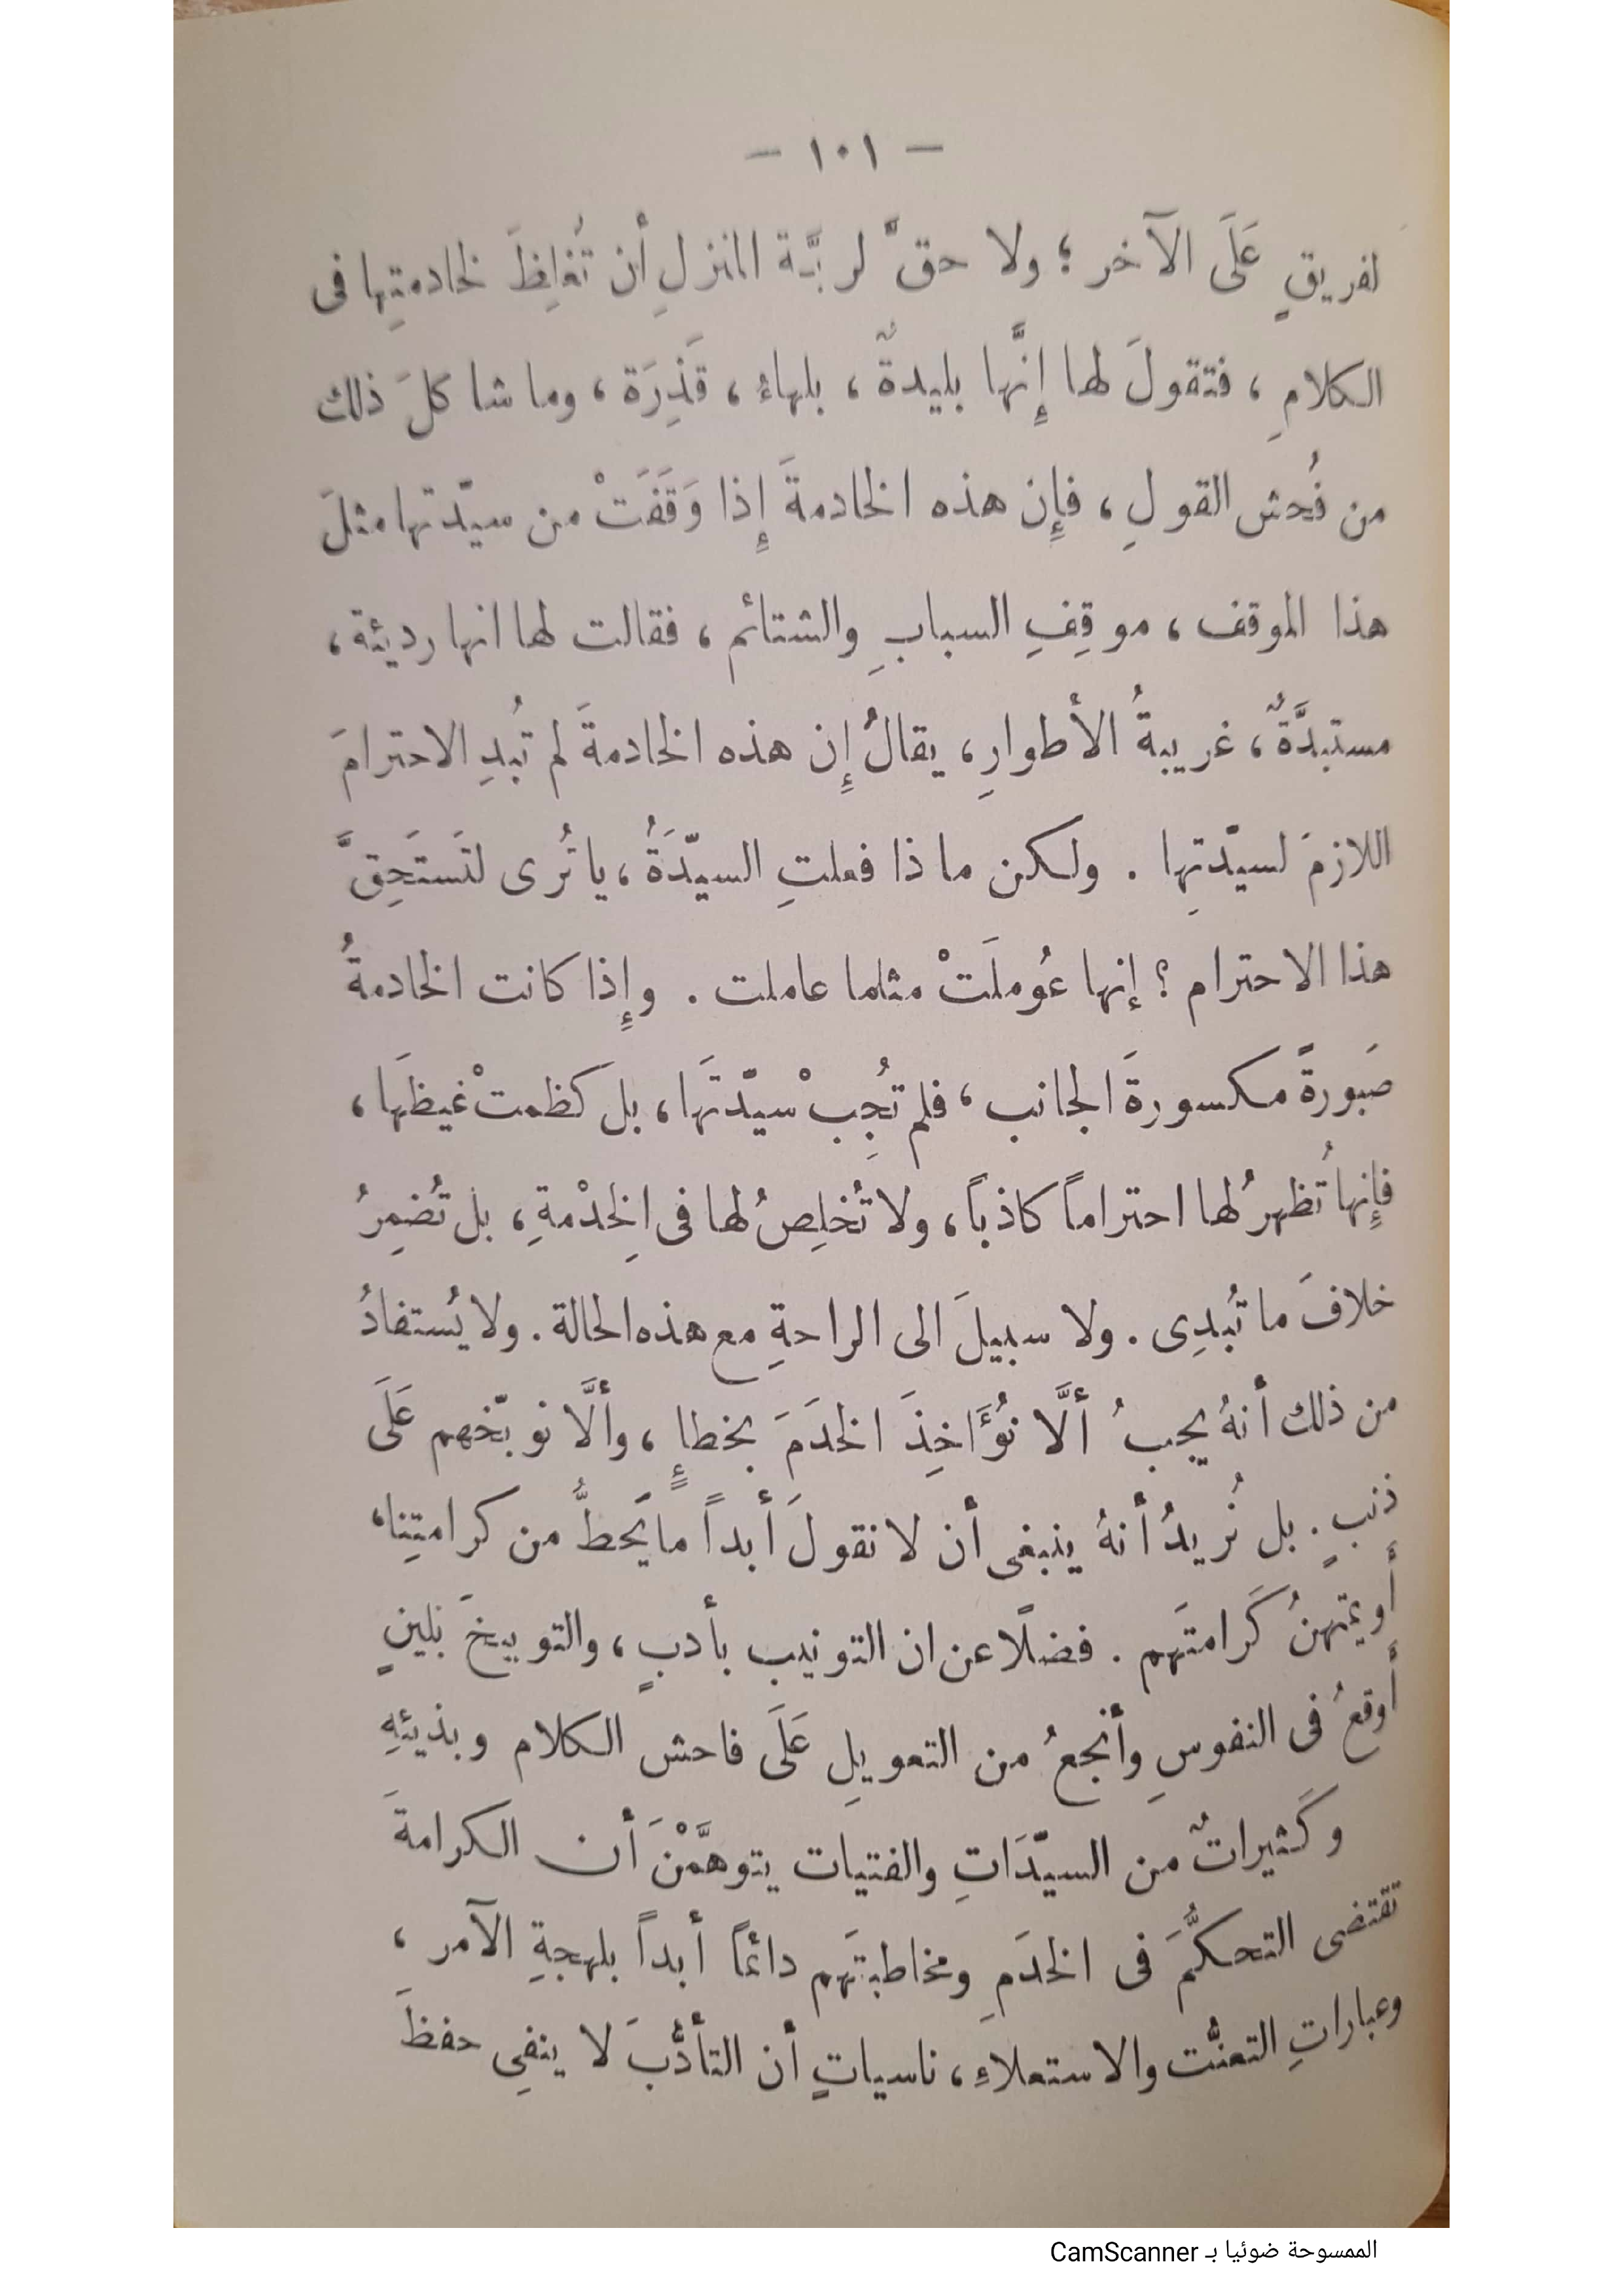 — ١٠١ —
لفريقٍ عَلَى الآخر ؛ ولا حقَّ لربَّة المنزلِ أن تُغالِظَ لخادمتِها فى
الكلامِ ، فتقولَ لها إِنَّها بليدةٌ ، بلهاءُ ، قَذِرَة ، وما شاكلَ ذلك
من فُحش القولِ ، فإِن هذه الخادمةَ إِذا وَقَفَتْ من سيّدتها مثلَ
هذا الموقف ، موقِفِ السبابِ والشتائم ، فقالت لها انها رديئة ،
مستبدَّةٌ ، غريبةُ الأطوارِ ، يقالُ إِن هذه الخادمةَ لم تُبدِ الاحترامَ
اللازمَ لسيّدتِها . ولكن ماذا فعلتِ السيّدَةُ ، يا تُرى لتَستَحِقَّ
هذا الاحترام ؟ إنها عُوملَتْ مثلما عاملت . وإِذا كانت الخادمةُ
صَبورةً مكسورةَ الجانب ، فلم تُجِبْ سيّدتَها ، بل كظمتْ غيظَها ،
فإِنها تُظهرُ لها احتراماً كاذباً ، ولا تُخلِصُ لها فى الخِدْمةِ ، بل تُضمِرُ
خلافَ ما تُبدِى . ولا سبيلَ الى الراحةِ مع هذه الحالة . ولا يُستفادُ
من ذلك أنهُ يجبُ ألَّا نُؤَاخِذَ الخدَمَ بخطإٍ ، وألَّا نوبّخهم عَلَى
ذنبٍ . بل نُريدُ أنهُ ينبغى أن لا نقولَ أبداً ما يَحطُّ من كرامتِنا ،
أو يمتهنُ كَرامتَهم . فضلًا عن ان التونيب بأدبٍ ، والتوبيخَ بلينٍ
أوقعُ فى النفوسِ وأنجعُ من التعويلِ عَلَى فاحش الكلام وبذيئهِ
وكَثيراتٌ من السيّدَاتِ والفتيات يتوهَّمْنَ أن الكرامةَ
تقتضى التحكمُّ‌َ فى الخدَمِ ومخاطبتَهم دائماً أبداً بلهجةِ الآمر ،
وعباراتِ التعنُّت والاستعلاءِ ، ناسياتٍ أن التأدُّبَ لا ينفِى حفظَ
الممسوحة ضوئيا بـ CamScanner